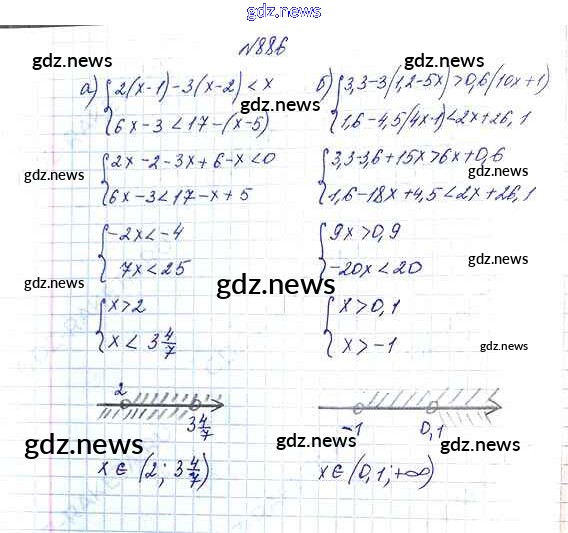 gdz.news
№886
gdz.news
gdz.news
а) {2(x-1)-3(x-2)<x
{6x-3<17-(x-5)
{2x-2-3x+6-x<0
{6x-3<17-x+5
gdz.news
{-2x<-4
{7x<25
gdz.news
gdz.news
{x>2
{x<3 4/7
2
3 4/7
gdz.news
x∈(2; 3 4/7)
б) {3,3-3(1,2-5x)>0,6(10x+1)
{1,6-4,5(4x-1)<2x+26,1
gdz.news
{3,3-3,6+15x>6x+0,6
{1,6-18x+4,5<2x+26,1
gdz.news
{9x>0,9
{-20x<20
gdz.news
{x>0,1
{x>-1
gdz.news
-1
0,1
gdz.news
gdz.news
x∈(0,1;+∞)